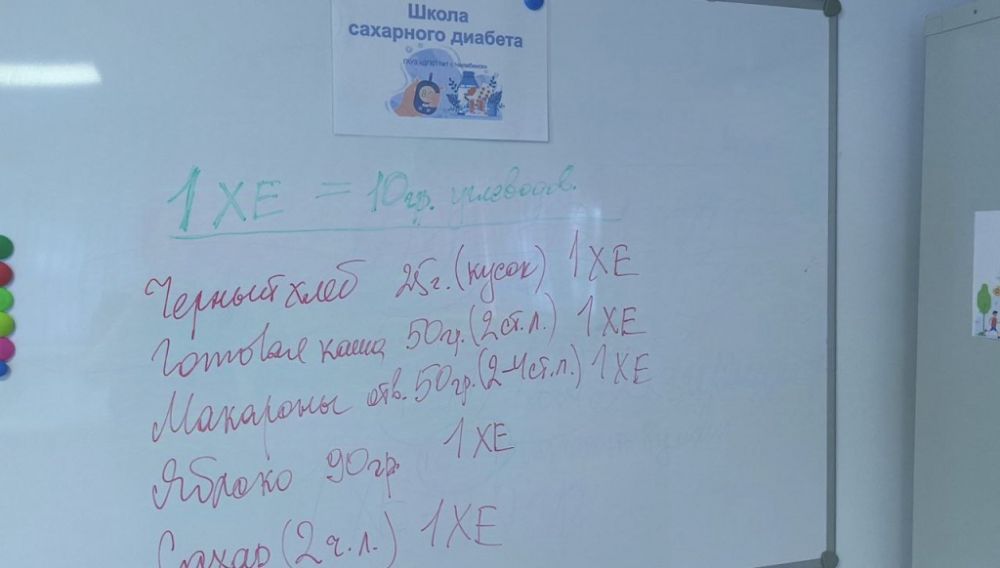 Школа
сахарного диабета
1 ХЕ = 10гр. углеводов.
Черный хлеб 25г. (кусок) 1 ХЕ
Готовая каша 50гр. (2 ст. л.) 1 ХЕ
Макароны отв. 50гр. (2-4 ст. л.) 1 ХЕ
Яблоко 90гр. 1 ХЕ
Сахар (2 ч. л.) 1 ХЕ